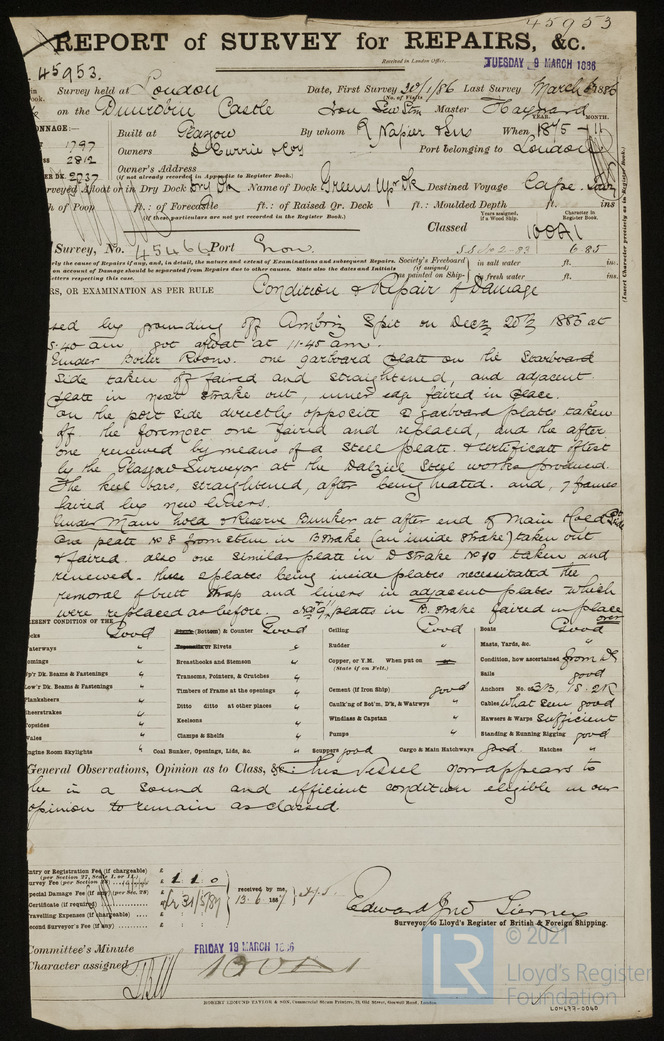 45953
REPORT of SURVEY for REPAIRS, &c.
Received in London Office,
TUESDAY 9 MARCH 1886
45953.
Survey held at London
Date, First Survey 20/1/86 Last Survey March 1886
(No. of Visits
on the Dunrobin Castle Iron Scw Stm Master Hayward
YEAR. MONTH.
ONNAGE:—
Built at Glasgow By whom R Napier & Sons When 1875 - 11
1797
Owners D Currie & Coy Port belonging to London
2812
Owner's Address
(if not already recorded in Appendix to Register Book.)
DK. 2037
urveyed Afloat or in Dry Dock Dry Dk Name of Dock Greens Upr Dk Destined Voyage Cape
h of Poop ft. : of Forecastle ft. : of Raised Qr. Deck ft. : Moulded Depth ft. ins
(If these particulars are not yet recorded in the Register Book.)
Years assigned, if a Wood Ship.
Character in Register Book.
Classed 100A1
(Insert Character precisely as in Register Book.)
Survey, No. 45466 Port Lon.
6-85
ly the cause of Repairs if any, and, in detail, the nature and extent of Examinations and subsequent Repairs.
on account of Damage should be separated from Repairs due to other causes. State also the dates and Initials
etters respecting this case.
Society's Freeboard (if assigned) as painted on Ship-
in salt water ft. ins.
in fresh water ft. ins.
RS, OR EXAMINATION AS PER RULE Condition & Repair of Damage
sed by grounding off Ambriz Spit on Decr 20th 1885 at
5.40 am got afloat at 11.45 am.
Under Boiler Room. one garboard plate on the Starboard
Side taken off faired and straightened, and adjacent
plate in next strake out, inner edge faired in place.
On the port side directly opposite 2 garboard plates taken
off the foremost one faired and replaced, and the after
one renewed by means of a Steel plate. & certificate of test
by the Glasgow Surveyor at the Dalziel Steel works produced.
The keel bars, straightened, after being heated. and, 7 frames
faired by new liners.
Under Main hold & Reserve Bunker at after end of Main Hold
One plate No 8 from stem in B Strake (an inside strake) taken out
& faired. also one similar plate in D Strake No 10 taken and
renewed. these 2 plates being inside plates necessitated the
removal of butt strap and liners in adjacent plates which
were replaced as before. plates in B. Strake faired in place
over
RESENT CONDITION OF THE
ecks Good
(Bottom) & Counter Good
Ceiling Good
Boats Good
aterways "
or Rivets "
Rudder "
Masts, Yards, &c. "
omings "
Breasthooks and Stemson "
Copper, or Y.M. When put on
(State if on Felt.)
Condition, how ascertained from Dk
pp'r Dk. Beams & Fastenings "
Transoms, Pointers, & Crutches "
Sails good
Low'r Dk. Beams & Fastenings "
Timbers of Frame at the openings "
Cement (if Iron Ship) good
Anchors No. of 3B, 1S, 2K
Planksheers "
Ditto ditto at other places "
Caulk'ng of Bot'm, D'k, & Watrwys "
Cables What seen good
heerstrakes "
Keelsons "
Windlass & Capstan "
Hawsers & Warps sufficient
opsides "
Wales "
Clamps & Shelfs "
Pumps "
Standing & Running Rigging good
Engine Room Skylights "
Coal Bunker, Openings, Lids, &c. "
Scuppers good
Cargo & Main Hatchways good
Hatches "
General Observations, Opinion as to Class, &c. This Vessel now appears to
be in a sound and efficient condition eligible in our
opinion to remain as classed
ntry or Registration Fee (if chargeable) £
(per Section 27, Scale I, or II.)
urvey Fee (per Section 28) £ 1 1 0
pecial Damage Fee (if any) (per Sec. 28) £
Certificate (if required) £
Travelling Expenses (if chargeable) £
econd Surveyor's Fee (if any) £
received by me,
Edward Jno Tierney
Surveyor to Lloyd's Register of British & Foreign Shipping.
Committee's Minute FRIDAY 19 MARCH 1886
Character assigned 100A1
ROBERT EDMUND TAYLOR & SON, Commercial Steam Printers, 19, Old Street, Goswell Road, London
LR
© 2021
Lloyd's Register
Foundation
LON677-0040